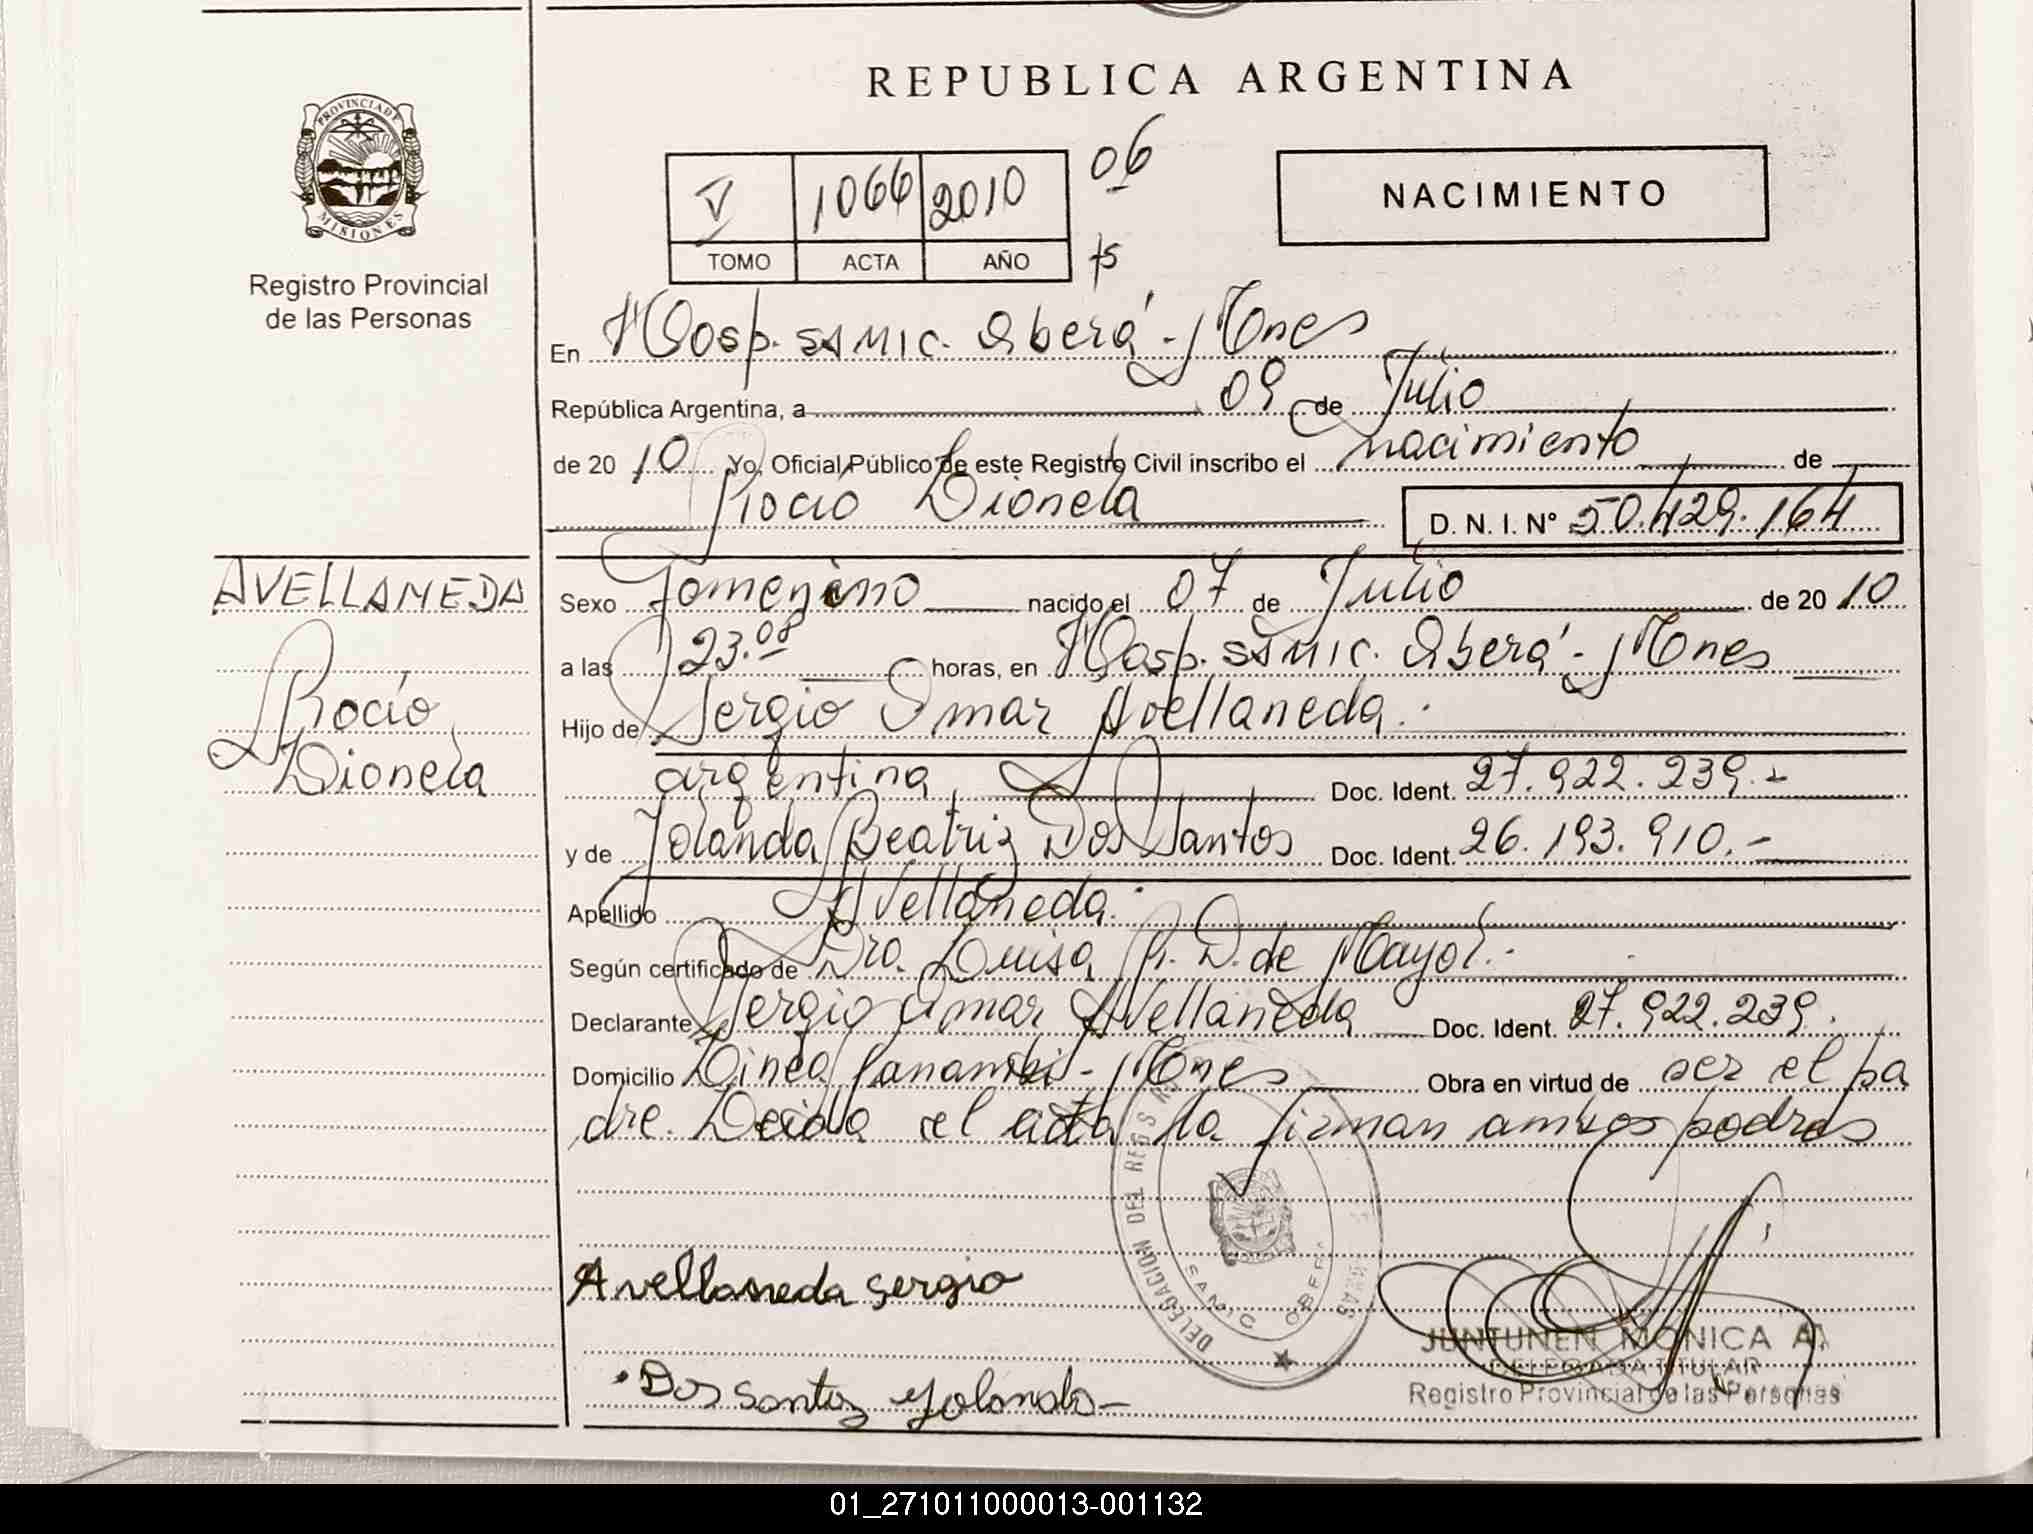 REPUBLICA ARGENTINA
PROVINCIA DE
MISIONES
Registro Provincial
de las Personas
V 1066 2010 06
TOMO ACTA AÑO
NACIMIENTO
En Hosp. SAMIC. Oberá - Mnes
República Argentina, a 09 de Julio
de 20 10 Yo, Oficial Público de este Registro Civil inscribo el nacimiento de
Rocío Dionela D. N. I. Nº 50.429.164
AVELLANEDA
Rocío
Dionela
Sexo Femenino nacido el 07 de Julio de 20 10
a las 23.08 horas, en Hosp. SAMIC. Oberá - Mnes
Hijo de Sergio Omar Avellaneda.
argentina Doc. Ident. 27.922.239.-
y de Yolanda Beatriz Dos Santos Doc. Ident. 26.193.910.-
Apellido Avellaneda.
Según certificado de Dra. Luisa R. D. de Mayol.-
Declarante Sergio Omar Avellaneda Doc. Ident. 27.922.239.
Domicilio Linea Panambi - Mnes Obra en virtud de ser el pa
dre. Leida el acta la firman ambos padres
DELEGACION DEL REG
SAMIC OBERA
Avellaneda Sergio
Dos Santos Yolanda -
JUNTUNEN MONICA A.
DELEGADA TITULAR
Registro Provincial de las Personas
01_271011000013-001132